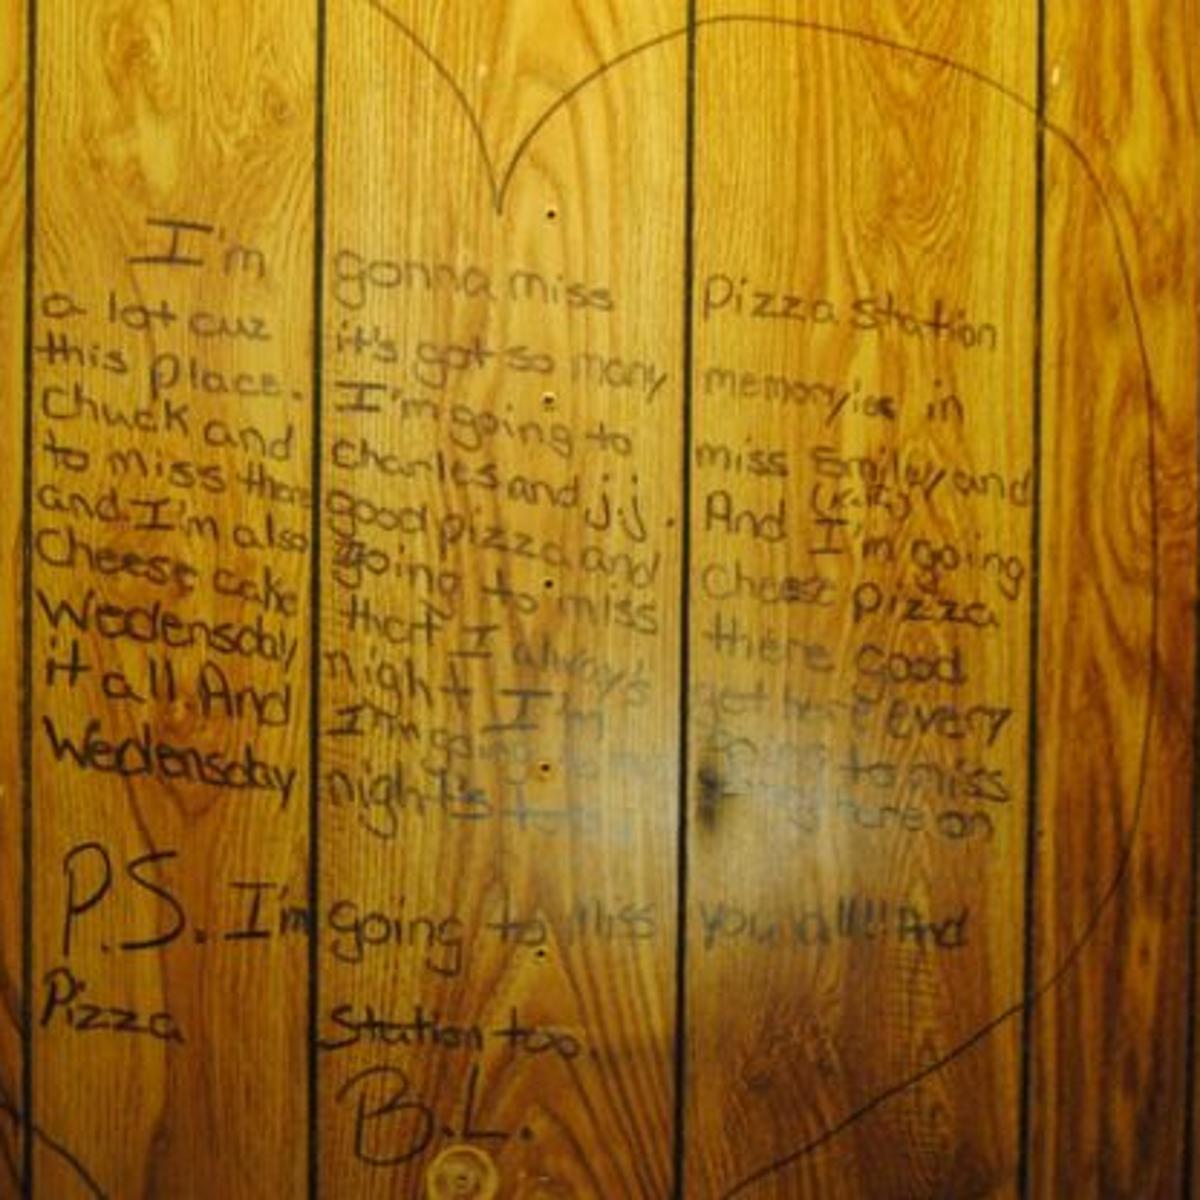 I'm gonna miss Pizza Station
a lot cuz it's got so many memoryies in
this place. I'm going to miss Smiley and
Chuck and charles and j.j. (K.K.) And I'm going
to miss there good pizza and cheese pizza
and I'm also going to miss there good
Cheese cake that I always get here every
Wedensday night I'm going to miss
it all. And I'm going here on
Wedensday night's
P.S. I'm going to miss you all!! And
Pizza Station too.
B.L.